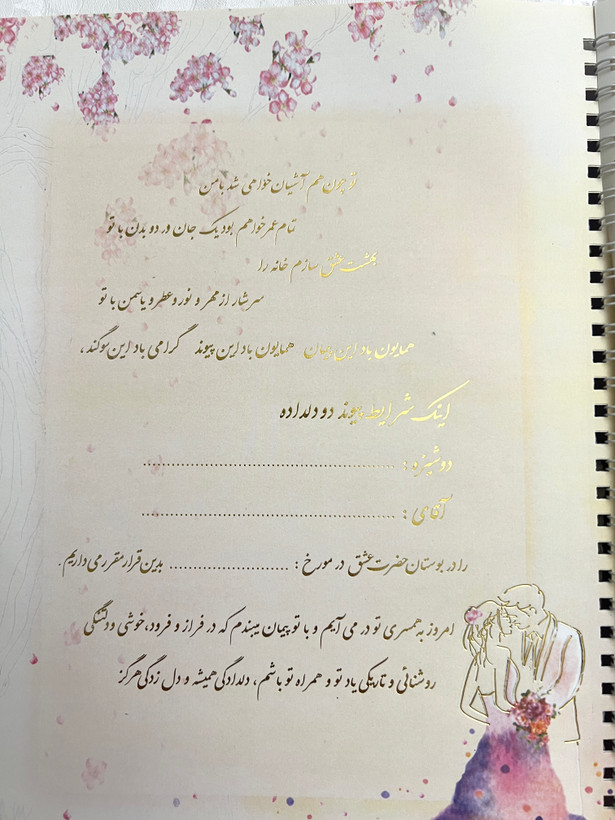 تو چون هم آشیان خواهی شد بامن
تمام عمر خواهم بود یک جان در دو بدن با تو
بهشت عشق سازم خانه را
سرشار از مهر و نور و عطر و یاسمن با تو
همایون باد این پیمان همایون باد این پیوند گرامی باد این سوگند،
اینک شرایط پیوند دو دلداده
دوشیزه : ............................................
آقای : ............................................
را در بوستان حضرت عشق در مورخ : ........................ بدین قرار مقرر می داریم .
امروز به همسری تو در می آیم و با تو پیمان میبندم که در فراز و فرود، خوشی و دلتنگی
روشنائی و تاریکی یاد تو و همراه تو باشم، دلدادگی همیشه و دل زدگی هرگز